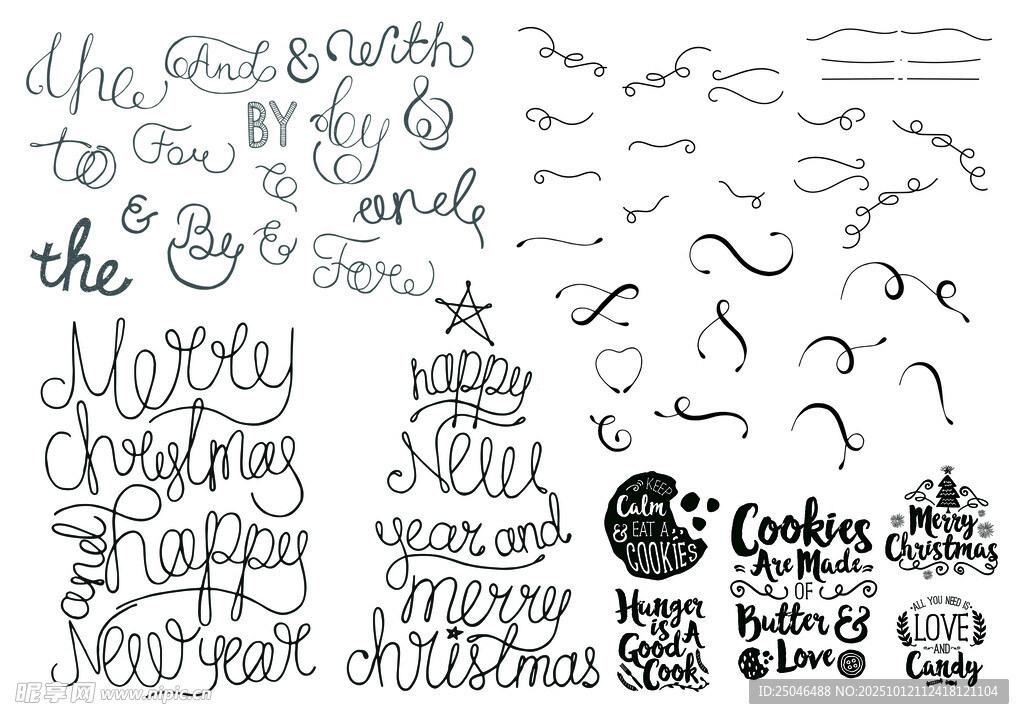 the And & with
BY by &
to For
& By & and
the For
Merry
christmas
and happy
New year
happy
New
year and
merry
christmas
KEEP
Calm
& EAT A
COOKIES
Hunger
is A
Good
Cook
Cookies
Are Made
OF
Butter &
Love
Merry
Christmas
ALL YOU NEED IS
LOVE
AND
Candy
昵享网 www.nipic.cn
ID:25046488 NO:20251012112418121104